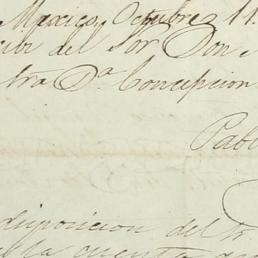 Mexico, Octubre 11.
del Sor Don
tra Da. Concepcion
Pab
disposicion del
la cuenta